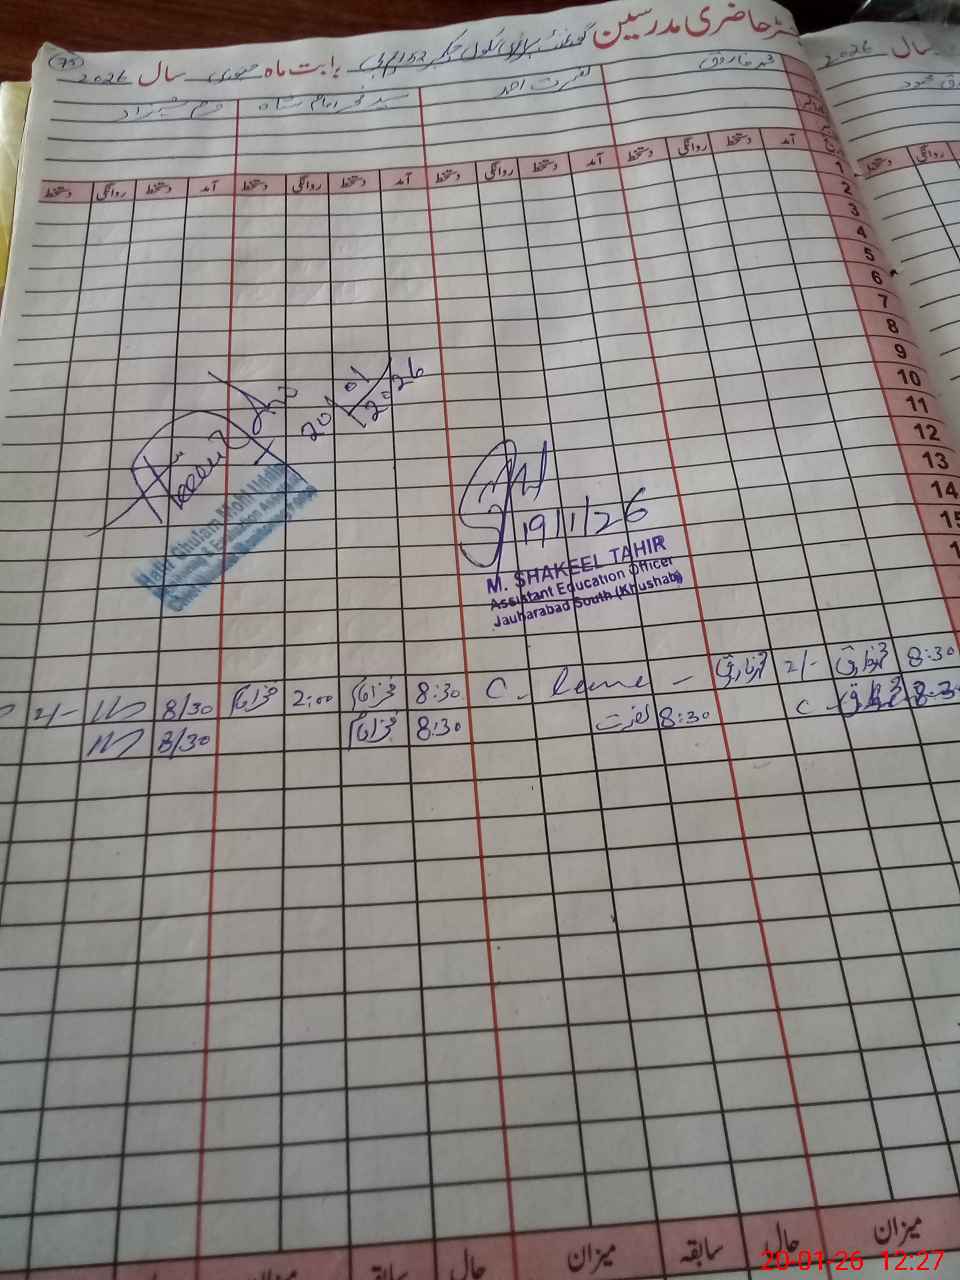 75
رجسٹر حاضری مدرسین گورنمنٹ پرائمری سکول چک 152 بابت ماہ جنوری سال 2026
سال 2026
محمد فاروق نصرت احمد سید فخر امام شاہ خرم شہزاد
آمد دستخط روانگی دستخط آمد دستخط روانگی دستخط آمد دستخط روانگی دستخط
روانگی دستخط
1
2
3
4
5
6
7
8
9
10
11
12
13
14
15
20/01/2026
19/1/26
M. SHAKEEL TAHIR
Assistant Education Officer
Jauharabad South (Khushab)
Ghulam Mohi Uddin
8:30 فاروق 2/- فاروق C. leave - 8:30 فخر امام 2:00 فخر امام 8/30 2/-
8:30 فاروق 8:30 نصرت 8:30 فخر امام 8/30
میزان حال سابقہ میزان حال سابقہ میزان
20-01-26 12:27